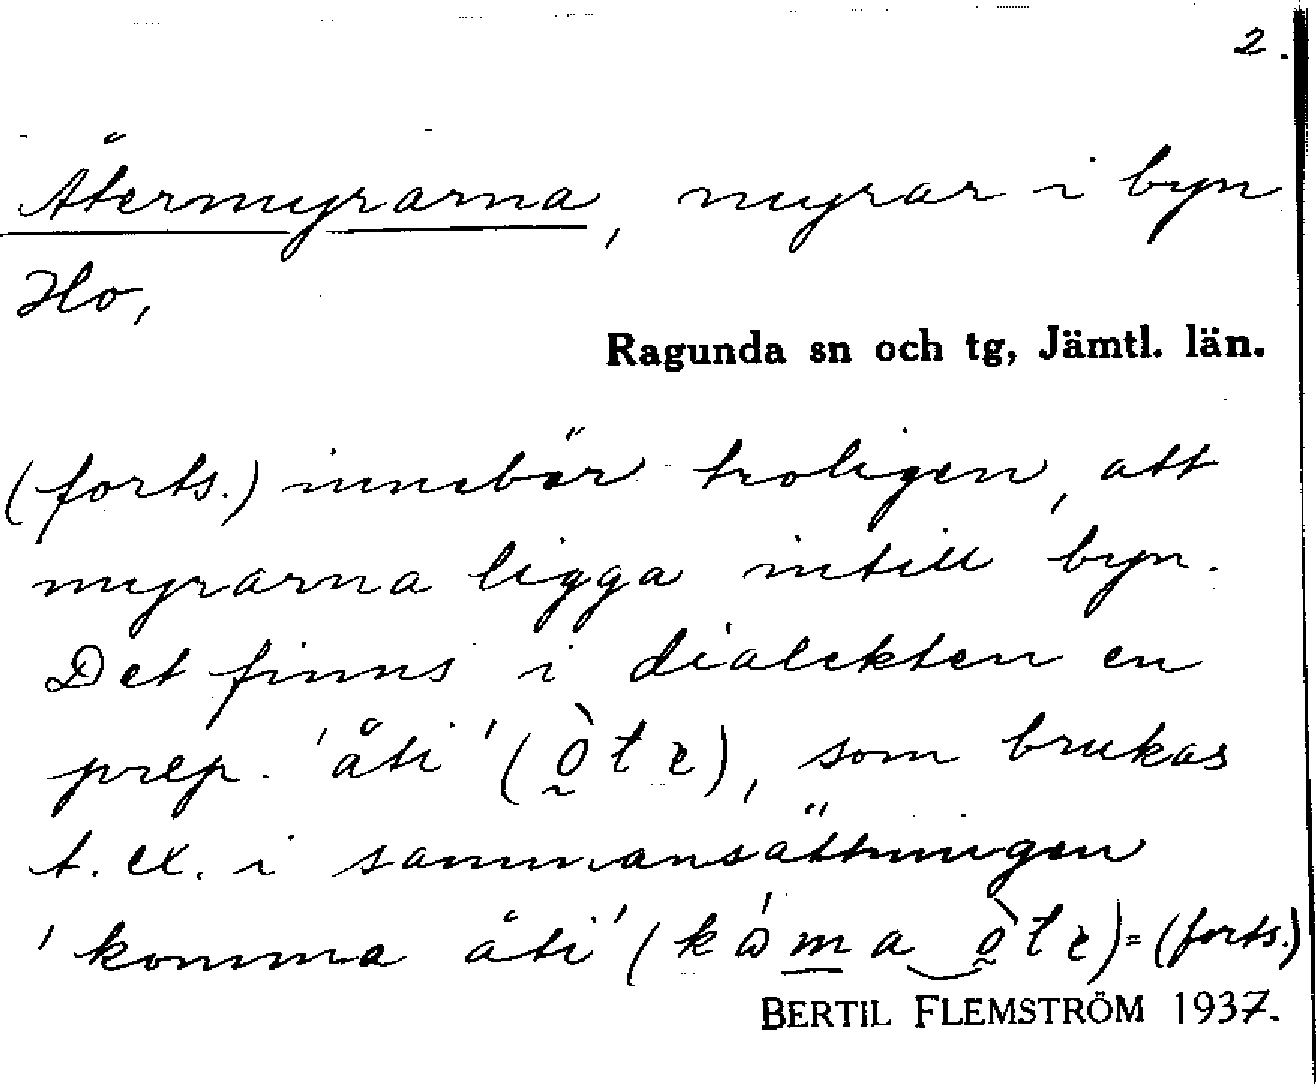 2.
Återmyrarna, myrar i byn
Ho,
Ragunda sn och tg, Jämtl. län.
(forts.) innebär troligen, att
myrarna ligga intill byn.
Det finns i dialekten en
prep. 'åti' (ò̰tɛ), som brukas
t. ex. i sammansättningen
'komma åti' (kɷ́m̲a‿ò̰tɛ) = (forts.)
BERTIL FLEMSTRÖM 1937.